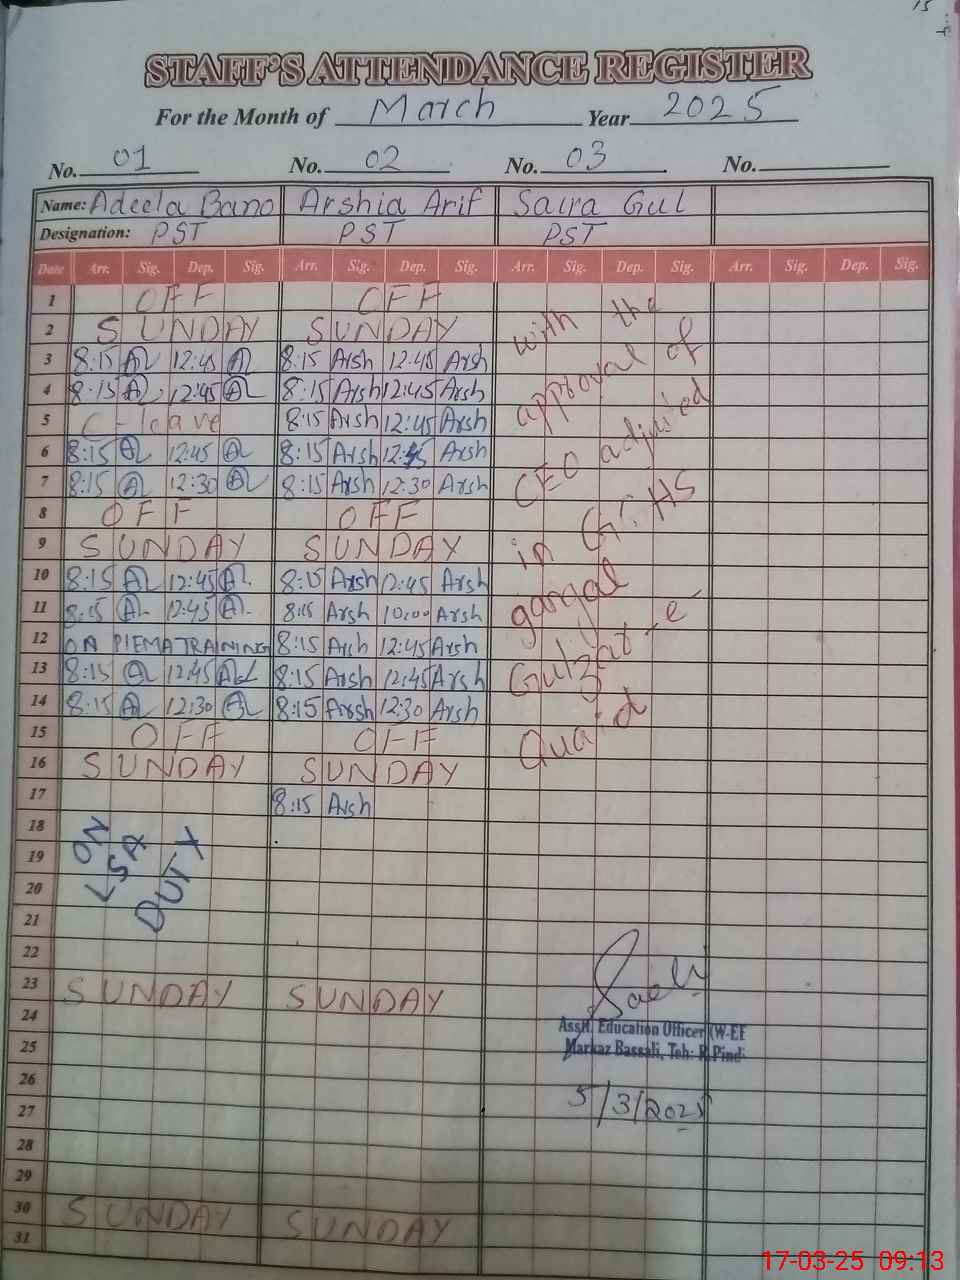 STAFF'S ATTENDANCE REGISTER
For the Month of March Year 2025
No. 01 No. 02 No. 03 No.
Name: Adeela Bano Arshia Arif Saira Gul
Designation: PST PST PST
Date Arr. Sig. Dep. Sig. Arr. Sig. Dep. Sig. Arr. Sig. Dep. Sig. Arr. Sig. Dep. Sig.
1 OFF OFF
2 SUNDAY SUNDAY
3 8:15 12:45 8:15 Arsh 12:45 Arsh
4 8:15 12:45 8:15 Arsh 12:45 Arsh
5 C-leave 8:15 Arsh 12:45 Arsh
6 8:15 12:45 8:15 Arsh 12:45 Arsh
7 8:15 12:30 8:15 Arsh 12:30 Arsh
8 OFF OFF
9 SUNDAY SUNDAY
10 8:15 12:45 8:15 Arsh 12:45 Arsh
11 8:15 12:45 8:15 Arsh 10:00 Arsh
12 ON PIEMA TRAINING 8:15 Arsh 12:45 Arsh
13 8:15 12:45 8:15 Arsh 12:45 Arsh
14 8:15 12:30 8:15 Arsh 12:30 Arsh
15 OFF OFF
16 SUNDAY SUNDAY
17 8:15 Arsh
18
19
20
21
22
23 SUNDAY SUNDAY
24
25
26
27
28
29
30 SUNDAY SUNDAY
31
with the
approval of
CEO adjusted
in G.HS
gangal
Gulzar-e
Quaid
ON
LSA
DUTY
Asstt. Education Officer (W-EE
Markaz Bassali, Teh: R.Pindi
5/3/2025
17-03-25 09:13